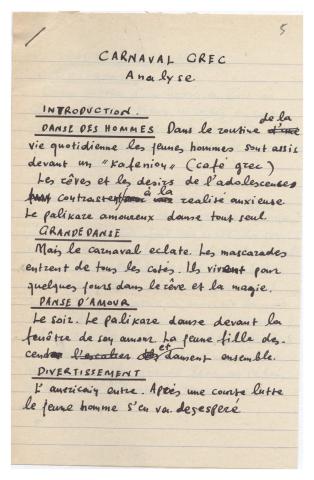 5
CARNAVAL GREC
Analyse
INTRODUCTION.
DANSE DES HOMMES Dans le routine de la
vie quotidienne les jeunes hommes sont assis
devant un "Kafenion" (café grec)
Les rêves et les desirs de l'adolescence
contrastent à la realité anxieuse
Le palikare amoureux danse tout seul.
GRANDE DANSE
Mais le carnaval eclate. Les mascarades
entrent de tous les cotés. Ils vivent pour
quelques jours dans le rêve et la magie.
DANSE D'AMOUR
Le soir. Le palikare danse devant la
fenêtre de son amour La jeune fille des-
cend et dansent ensemble.
DIVERTISSEMENT
L'americain entre. Après une courte lutte
le jeune homme s'en va desesperé